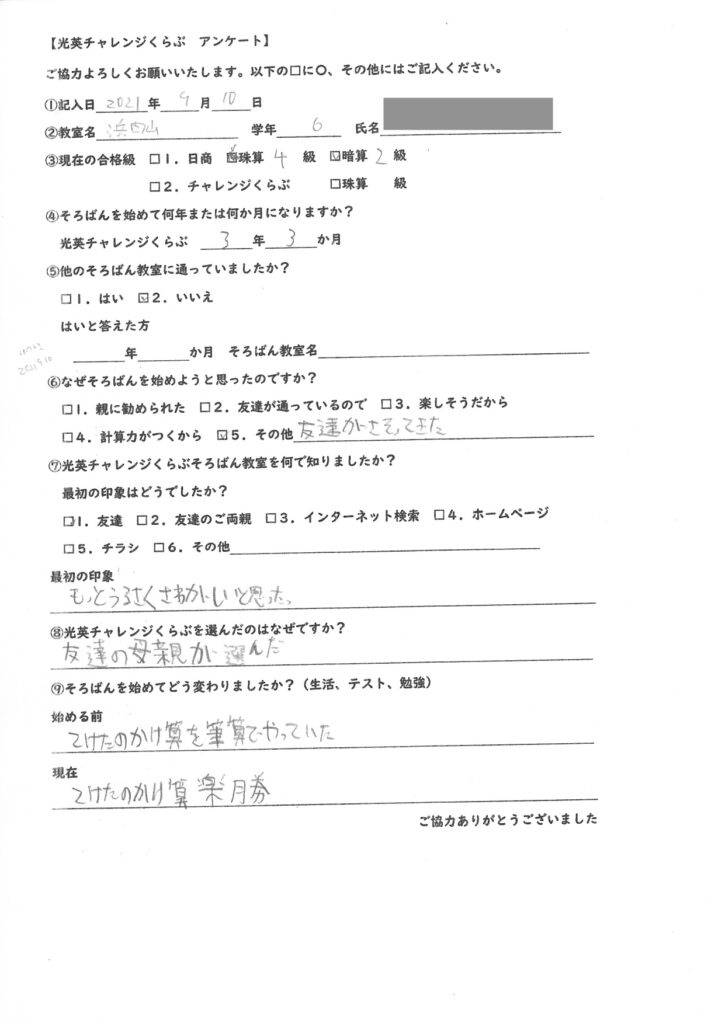 【光英チャレンジくらぶ　アンケート】
ご協力よろしくお願いいたします。以下の□に〇、その他にはご記入ください。
①記入日 2021年 9月10日
②教室名 浜田山　学年 6　氏名
③現在の合格級　□1．日商　☑珠算 4 級　☑暗算 2 級
□2．チャレンジくらぶ　□珠算　級
④そろばんを始めて何年または何か月になりますか？
光英チャレンジくらぶ　3年 3か月
⑤他のそろばん教室に通っていましたか？
□1．はい　☑2．いいえ
はいと答えた方
年　か月　そろばん教室名
2021 9.10
⑥なぜそろばんを始めようと思ったのですか？
□1．親に勧められた　□2．友達が通っているので　□3．楽しそうだから
□4．計算力がつくから　☑5．その他 友達がさそってきた
⑦光英チャレンジくらぶそろばん教室を何で知りましたか？
最初の印象はどうでしたか？
☑1．友達　□2．友達のご両親　□3．インターネット検索　□4．ホームページ
□5．チラシ　□6．その他
最初の印象
もっとうるさくさわがしいと思った。
⑧光英チャレンジくらぶを選んだのはなぜですか？
友達の母親が選んだ
⑨そろばんを始めてどう変わりましたか？（生活、テスト、勉強）
始める前
2けたのかけ算を筆算でやっていた
現在
2けたのかけ算楽勝
ご協力ありがとうございました